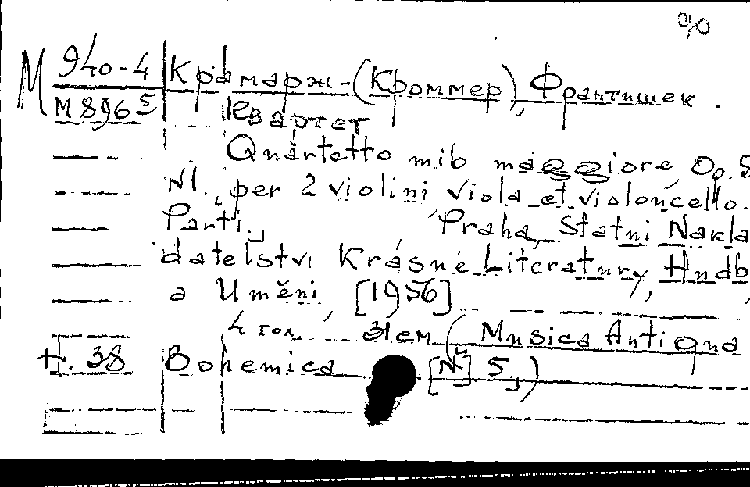 90
М 940-4 Крамарж-(Кроммер), Франтишек.
М 896 5 Квартет
Quartetto mib maggiore Op. 5
N1. per 2 violini viola et violoncello.
Parti. Praha, Statni Nakla
datelstvi Krásné Literatury, Hudb
a Uměni, [1956]
4 тет. 31см (Musica Antiqua
t. 38 Bohemica [N 5])